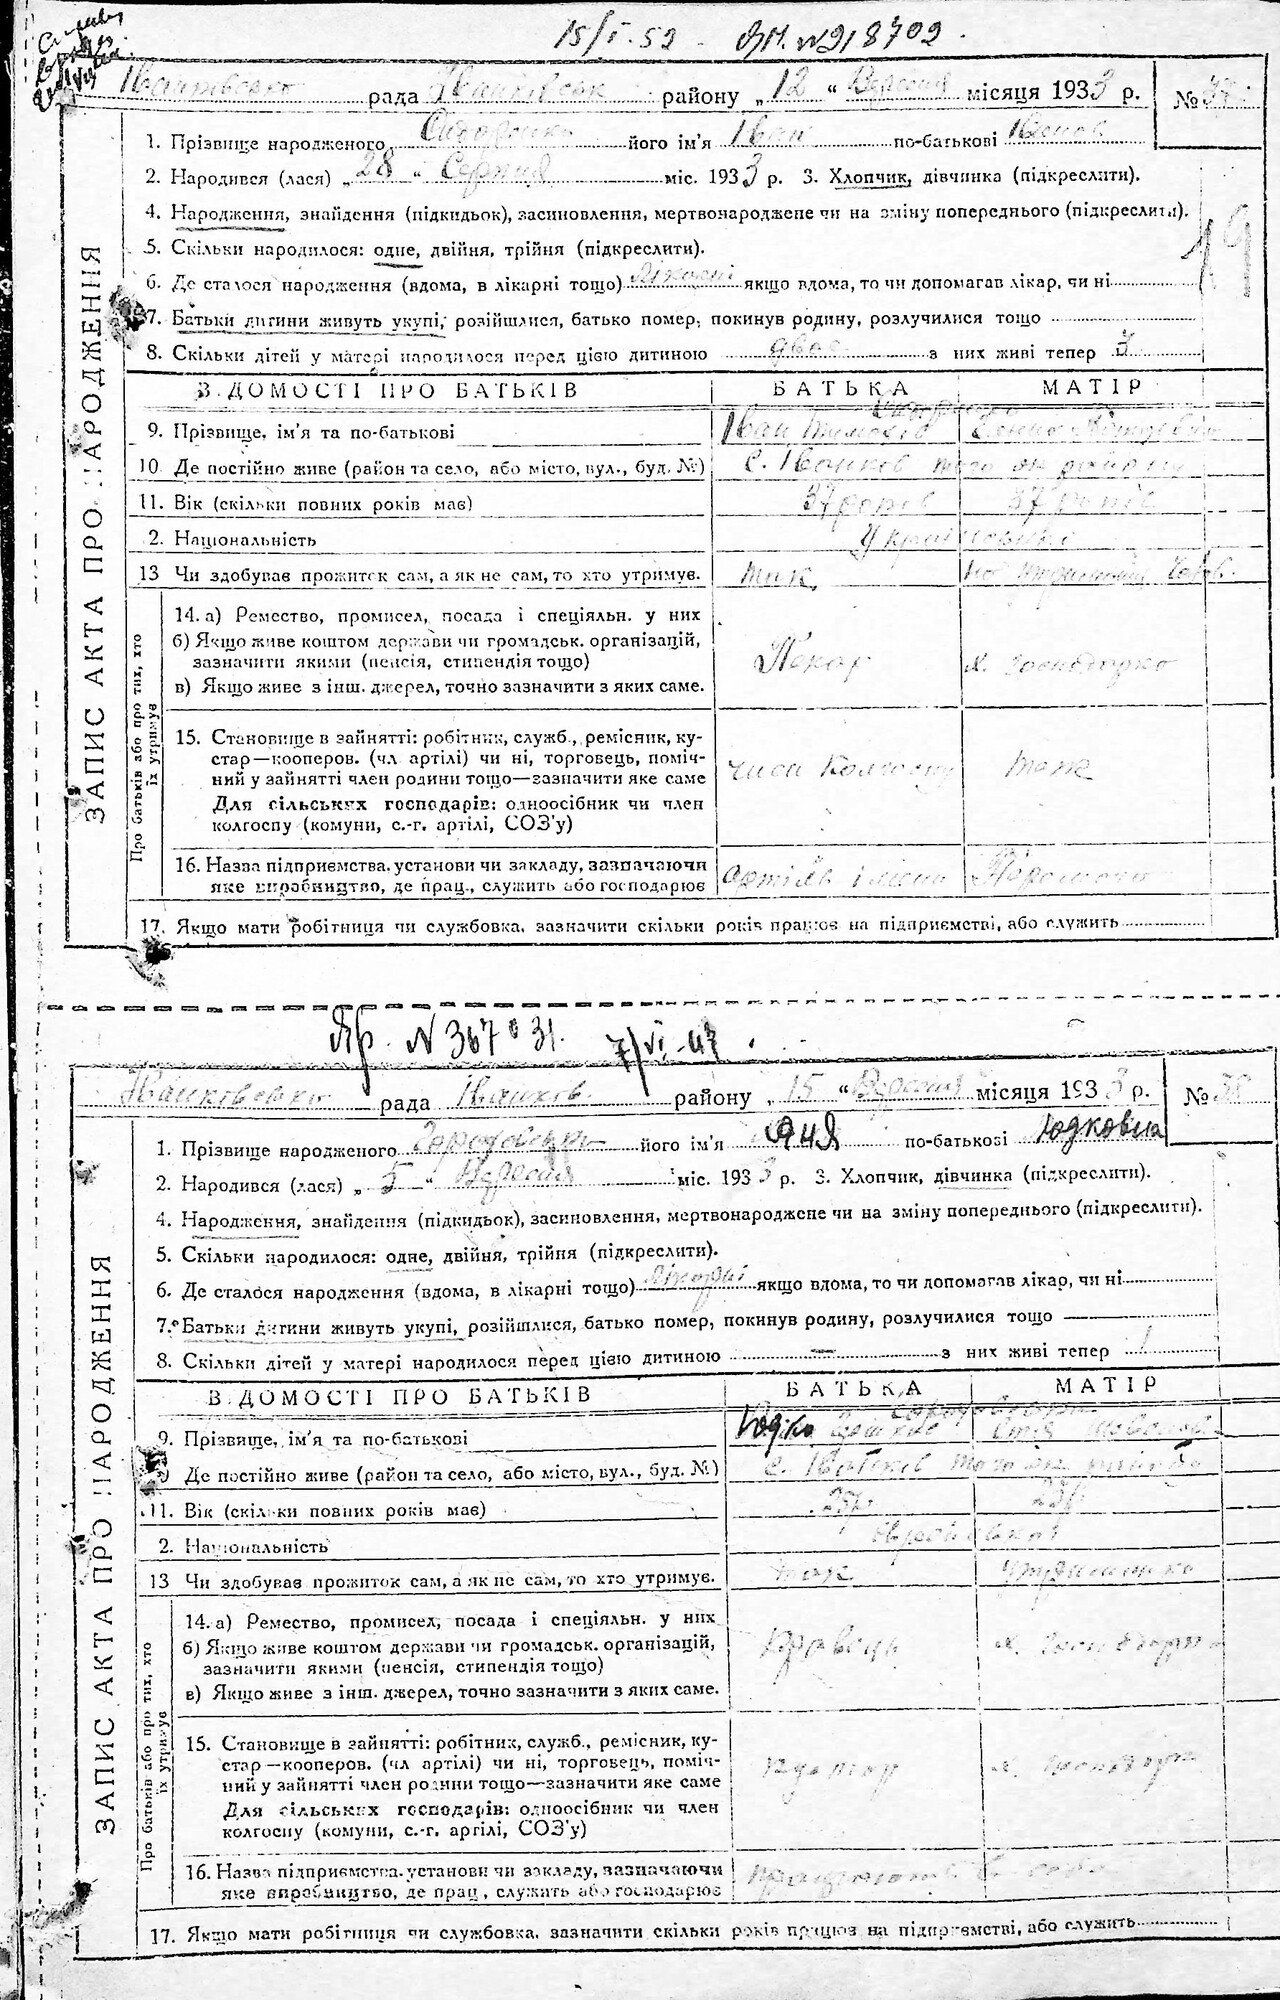 15/I-52 - ЯН. №918702.
рада району „ 12 “ Вересня місяця 1933 р. № 37
1. Прізвище народженого Сидоренко його ім'я Іван по-батькові Іванов
2. Народився (лася) „ 28 “ Серпня міс. 1933 р. 3. Хлопчик, дівчинка (підкреслити).
4. Народження, знайдення (підкидьок), засиновлення, мертвонароджене чи на зміну попереднього (підкреслити).
19
5. Скільки народилося: одне, двійня, трійня (підкреслити).
6. Де сталося народження (вдома, в лікарні тощо) лікарні якщо вдома, то чи допомагав лікар, чи ні
7. Батьки дитини живуть укупі, розійшлися, батько помер, покинув родину, розлучилися тощо
8. Скільки дітей у матері народилося перед цією дитиною двоє з них живі тепер 3
ЗАПИС АКТА ПРО НАРОДЖЕННЯ
ВІДОМОСТІ ПРО БАТЬКІВ БАТЬКА МАТІР
Сидоренко
9. Прізвище, ім'я та по-батькові Іван
10. Де постійно живе (район та село, або місто, вул., буд. №) с. Іванків того ж району
11. Вік (скільки повних років має) 37 років 37 років
2. Національність Українські
13 Чи здобував прожиток сам, а як не сам, то хто утримує. так, на утриманні чолов.
Про батьків або про тих, хто їх утримує
14. а) Ремество, промисел, посада і спеціяльн. у них
б) Якщо живе коштом держави чи громадськ. організацій,
зазначити якими (пенсія, стипендія тощо) Пекар х. господарка
в) Якщо живе з інш. джерел, точно зазначити з яких саме.
15. Становище в зайнятті: робітник, служб., ремісник, ку-
стар—кооперов. (чл артілі) чи ні, торговець, поміч-
ний у зайнятті член родини тощо—зазначити яке саме член колгоспу теж
Для сільських господарів: одноосібник чи член
колгоспу (комуни, с.-г. артілі, СОЗ'у)
16. Назва підприємства, установи чи закладу, зазначаючи
яке виробництво, де прац., служить або господарює артіль імени
17. Якщо мати робітниця чи службовка, зазначити скільки років працює на підприємстві, або служить
Яр. N 367031. 7/VI-47
рада Іванков. району „ 15 “ Вересня місяця 1933 р. № 38
1. Прізвище народженого його ім'я Аня по-батькові Юдковна
2. Народився (лася) „ 5 “ Вересня міс. 1933 р. 3. Хлопчик, дівчинка (підкреслити).
4. Народження, знайдення (підкидьок), засиновлення, мертвонароджене чи на зміну попереднього (підкреслити).
5. Скільки народилося: одне, двійня, трійня (підкреслити).
6. Де сталося народження (вдома, в лікарні тощо) лікарні якщо вдома, то чи допомагав лікар, чи ні
7. Батьки дитини живуть укупі, розійшлися, батько помер, покинув родину, розлучилися тощо
8. Скільки дітей у матері народилося перед цією дитиною — з них живі тепер 1
ЗАПИС АКТА ПРО НАРОДЖЕННЯ
ВІДОМОСТІ ПРО БАТЬКІВ БАТЬКА МАТІР
9. Прізвище, ім'я та по-батькові Юдко
Де постійно живе (район та село, або місто, вул., буд. №) с. Іванків того ж району
11. Вік (скільки повних років має) 25р. 25р.
2. Національність Єврейської
13 Чи здобував прожиток сам, а як не сам, то хто утримує. так утриманка
Про батьків або про тих, хто їх утримує
14. а) Ремество, промисел, посада і спеціяльн. у них
б) Якщо живе коштом держави чи громадськ. організацій, Кравець х. господарка
зазначити якими (пенсія, стипендія тощо)
в) Якщо живе з інш. джерел, точно зазначити з яких саме.
15. Становище в зайнятті: робітник, служб., ремісник, ку-
стар—кооперов. (чл артілі) чи ні, торговець, поміч- кустар х. господарка
ний у зайнятті член родини тощо—зазначити яке саме
Для сільських господарів: одноосібник чи член
колгоспу (комуни, с.-г. артілі, СОЗ'у)
16. Назва підприємства, установи чи закладу, зазначаючи
яке виробництво, де прац., служить або господарює
17. Якщо мати робітниця чи службовка, зазначити скільки років працює на підприємстві, або служить